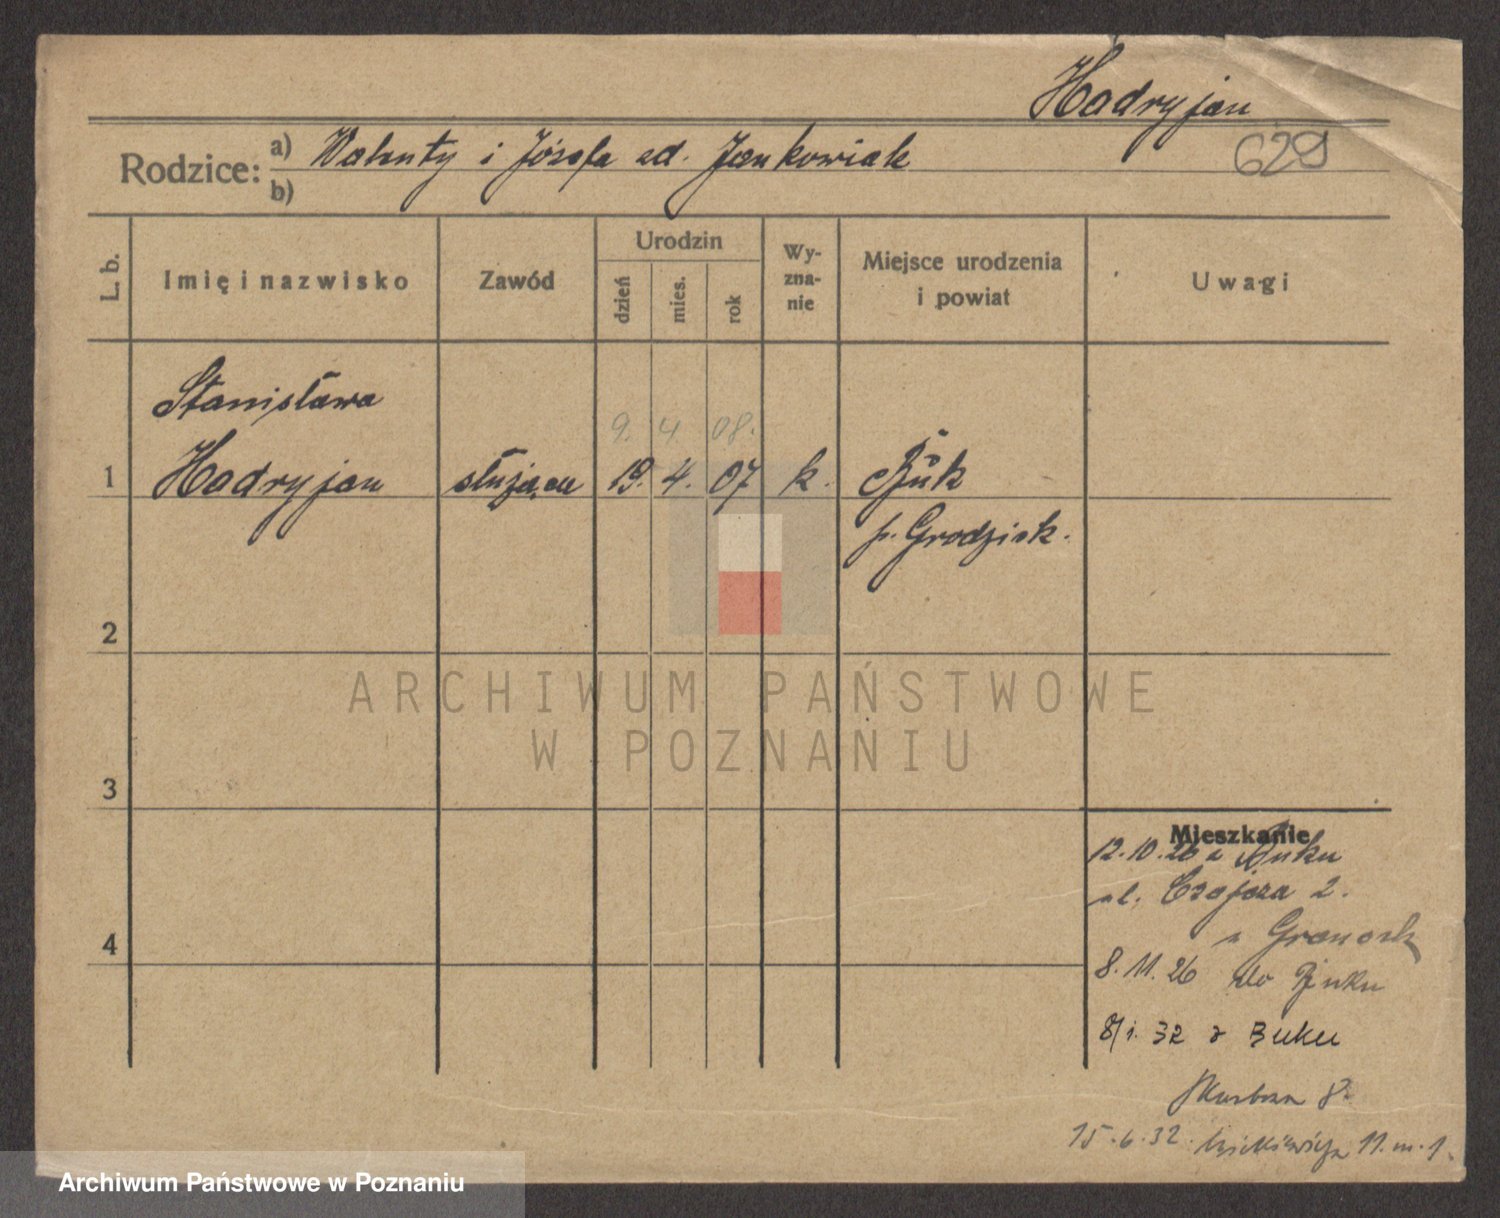 Hadryjan
629
Rodzice: a) Walenty i Józefa zd. Jankowiak
b)
L. b.
Imię i nazwisko
Zawód
Urodzin
dzień
mies.
rok
Wy-
zna-
nie
Miejsce urodzenia
i powiat
Uwagi
Stanisława
9. 4. 08.
1 Hadryjan służąca 19. 4. 07 k. Buk
p. Grodzisk.
2
3
4
Mieszkanie
12.10.26 z Buku
ul. Czajcza 2.
8.11.26 do Buku
8/1. 32 z Buku
8.
15.6.32. Mickiewicza 11. m. 1.
ARCHIWUM PAŃSTWOWE
W POZNANIU
Archiwum Państwowe w Poznaniu